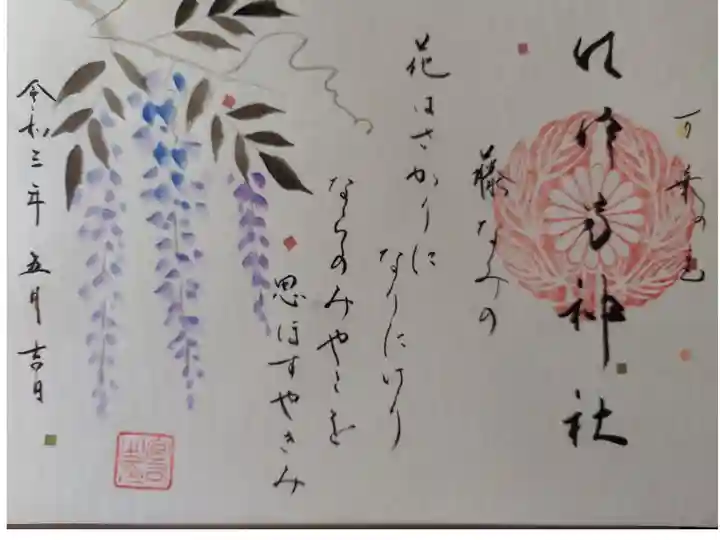 万葉の色
神社
藤なみの
花はさかりに
なりにけり
ならのみやこを
思ほすやきみ
令和三年 五月吉日